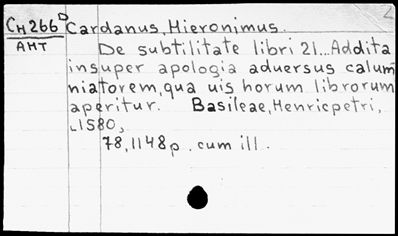 CH266D Cardanus, Hieronimus.
AMT
De subtilitate libri 21... Addita
insuper apologia aduersus calum
niatorem, qua uis horum librorum
aperitur. Basileae, Henricpetri,
1580,
78, 1148p. cum ill.
2